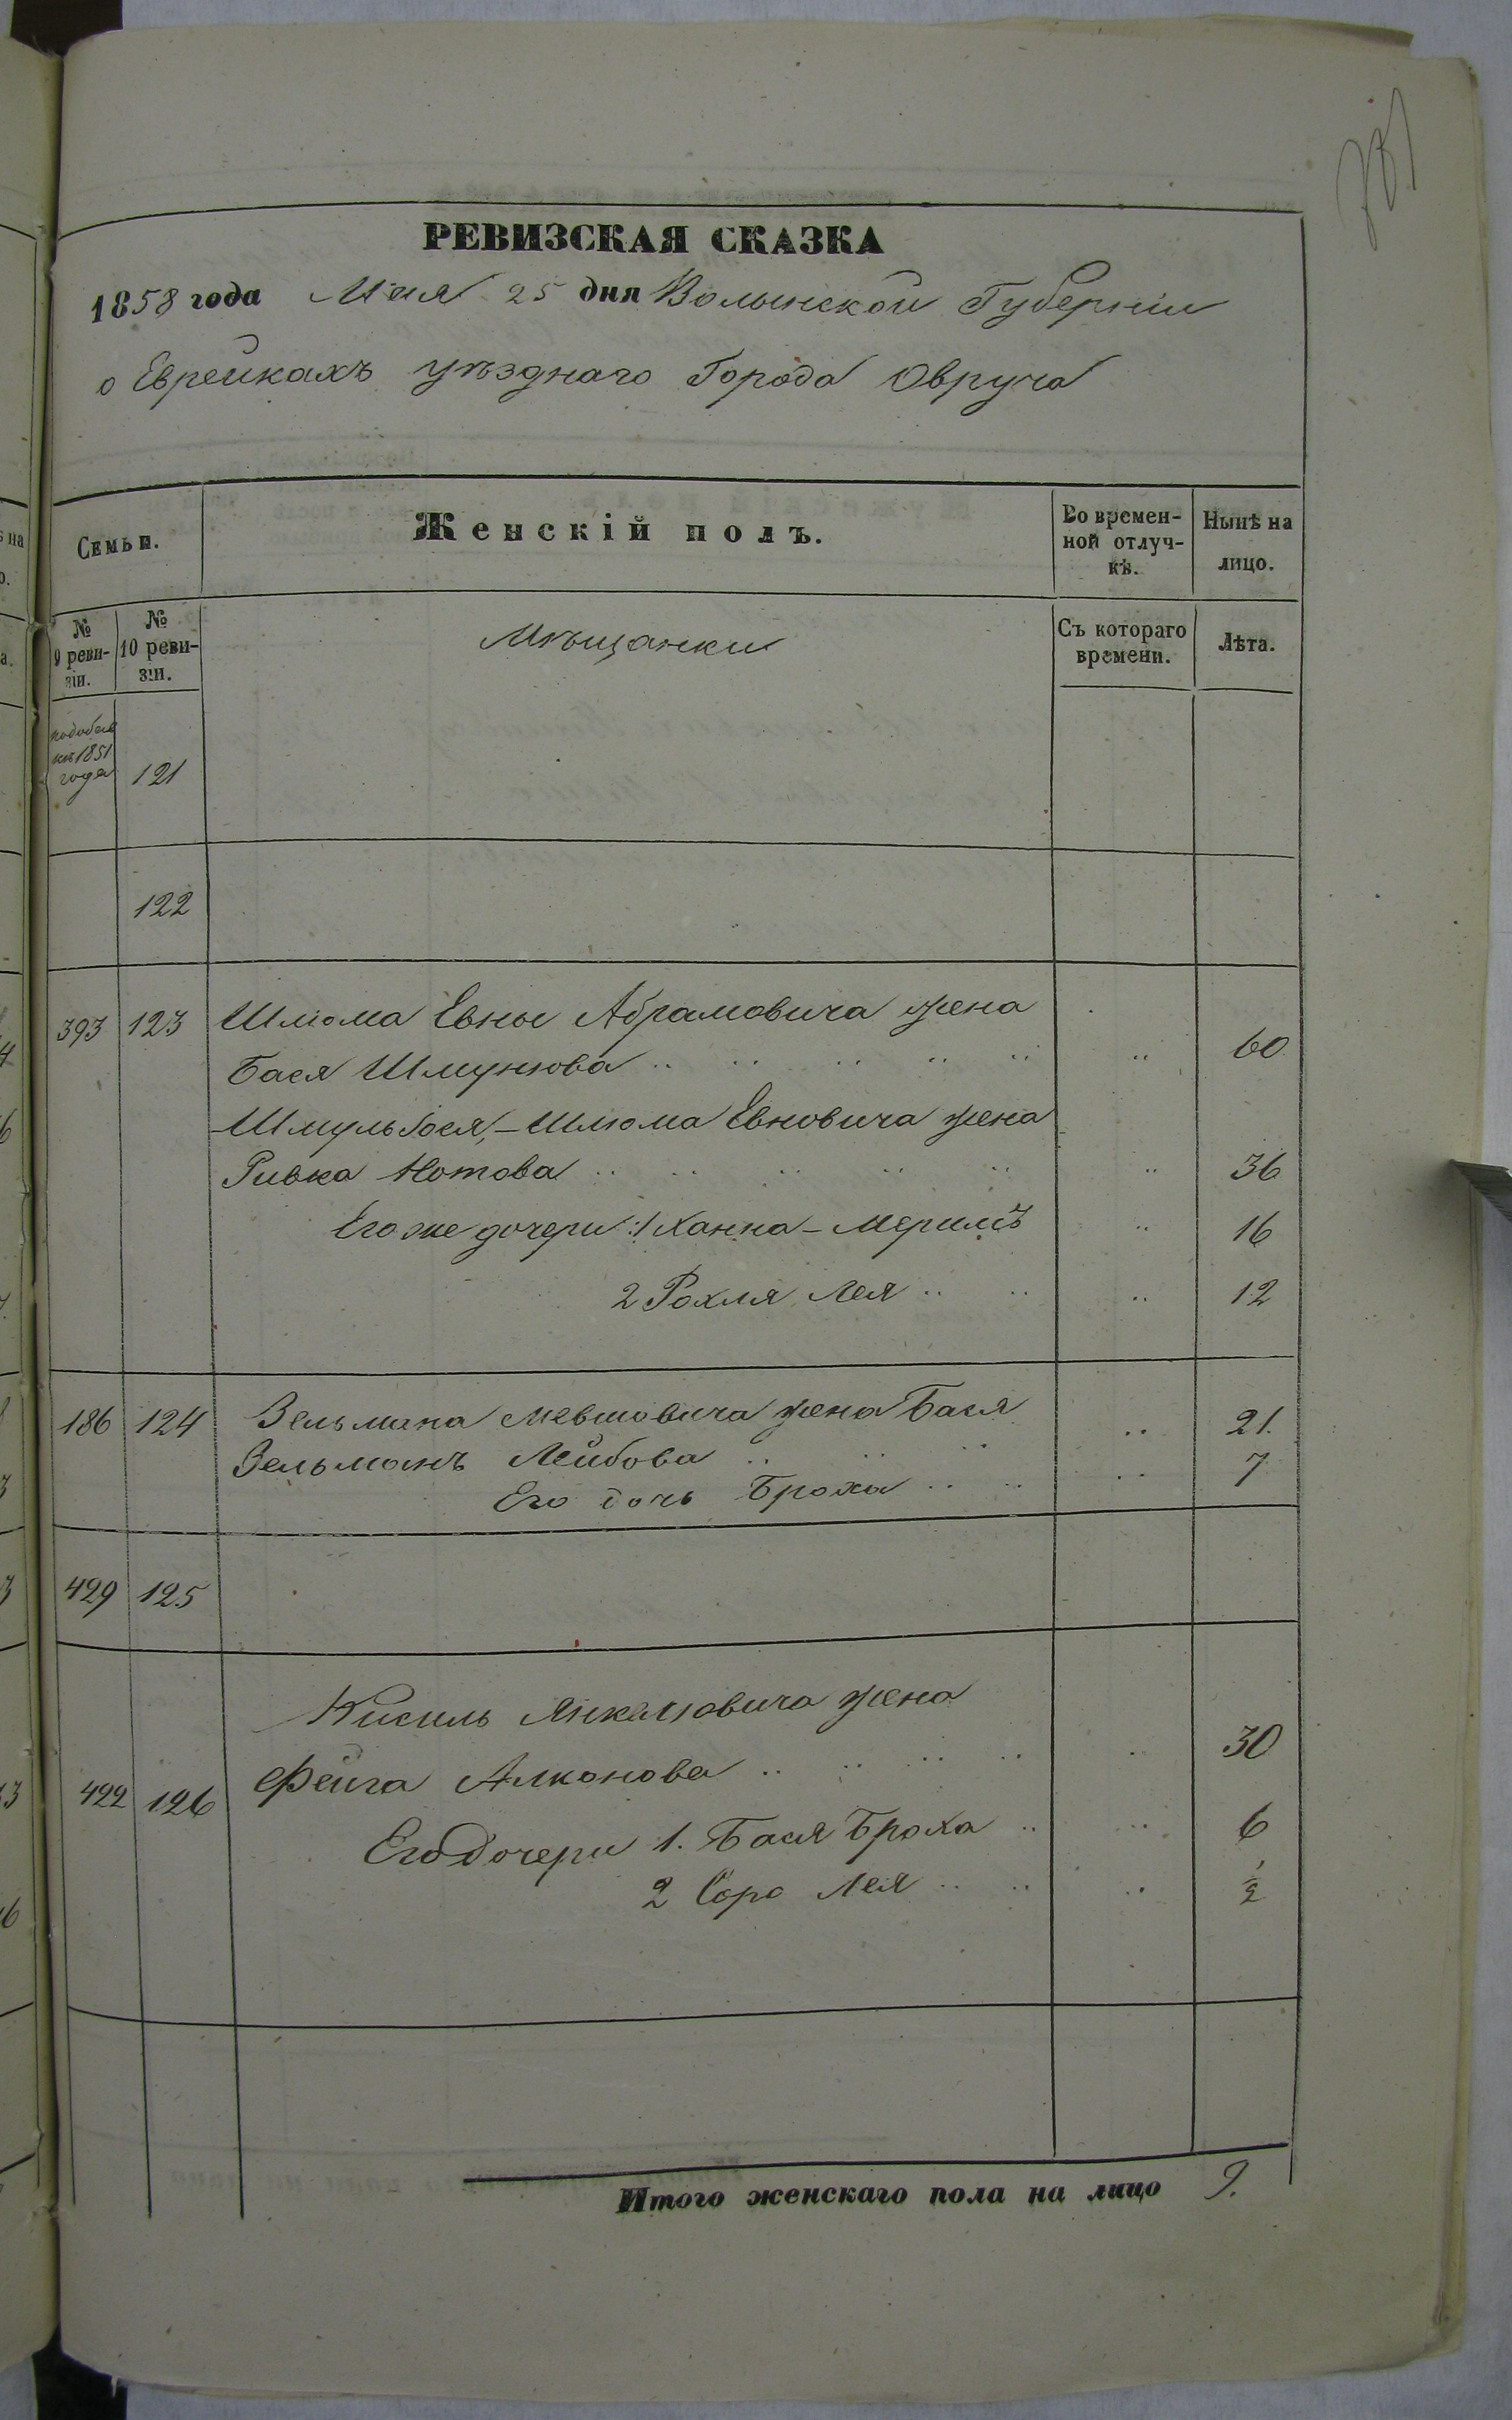 РЕВИЗСКАЯ СКАЗКА
1858 года Мая 25 дня Волынской Губерніи
о Еврейкахъ уѣзднаго Города Овруча
Семьи.
Женскій полъ.
Во времен-
ной отлуч-
кѣ.
Нынѣ на
лицо.
№
9 реви-
зіи.
№
10 реви-
зіи.
Мѣщанки
Съ котораго
времени.
Лѣта.
1851
года 121
122
393 123 Шлиома Евны Абрамовича жена
Бася Шмунюва 60
Шмуль Іося, - Шлюма Евновича жена
Ривка Нотова 36
Его же дочери: 1 Ханна - Меримъ 16
2 Рохля Лея 12
186 124 Зельмана Мевшовича жена Бася 21.
Зельманъ Лейбова 7
Его дочь Броха
429 125
Кисиль Янкелювича жена
422 126 Фейга Алконова 30
Его дочери 1. Бася Броха 6
2 Сора Лея 1/2
Итого женскаго пола на лицо 9.